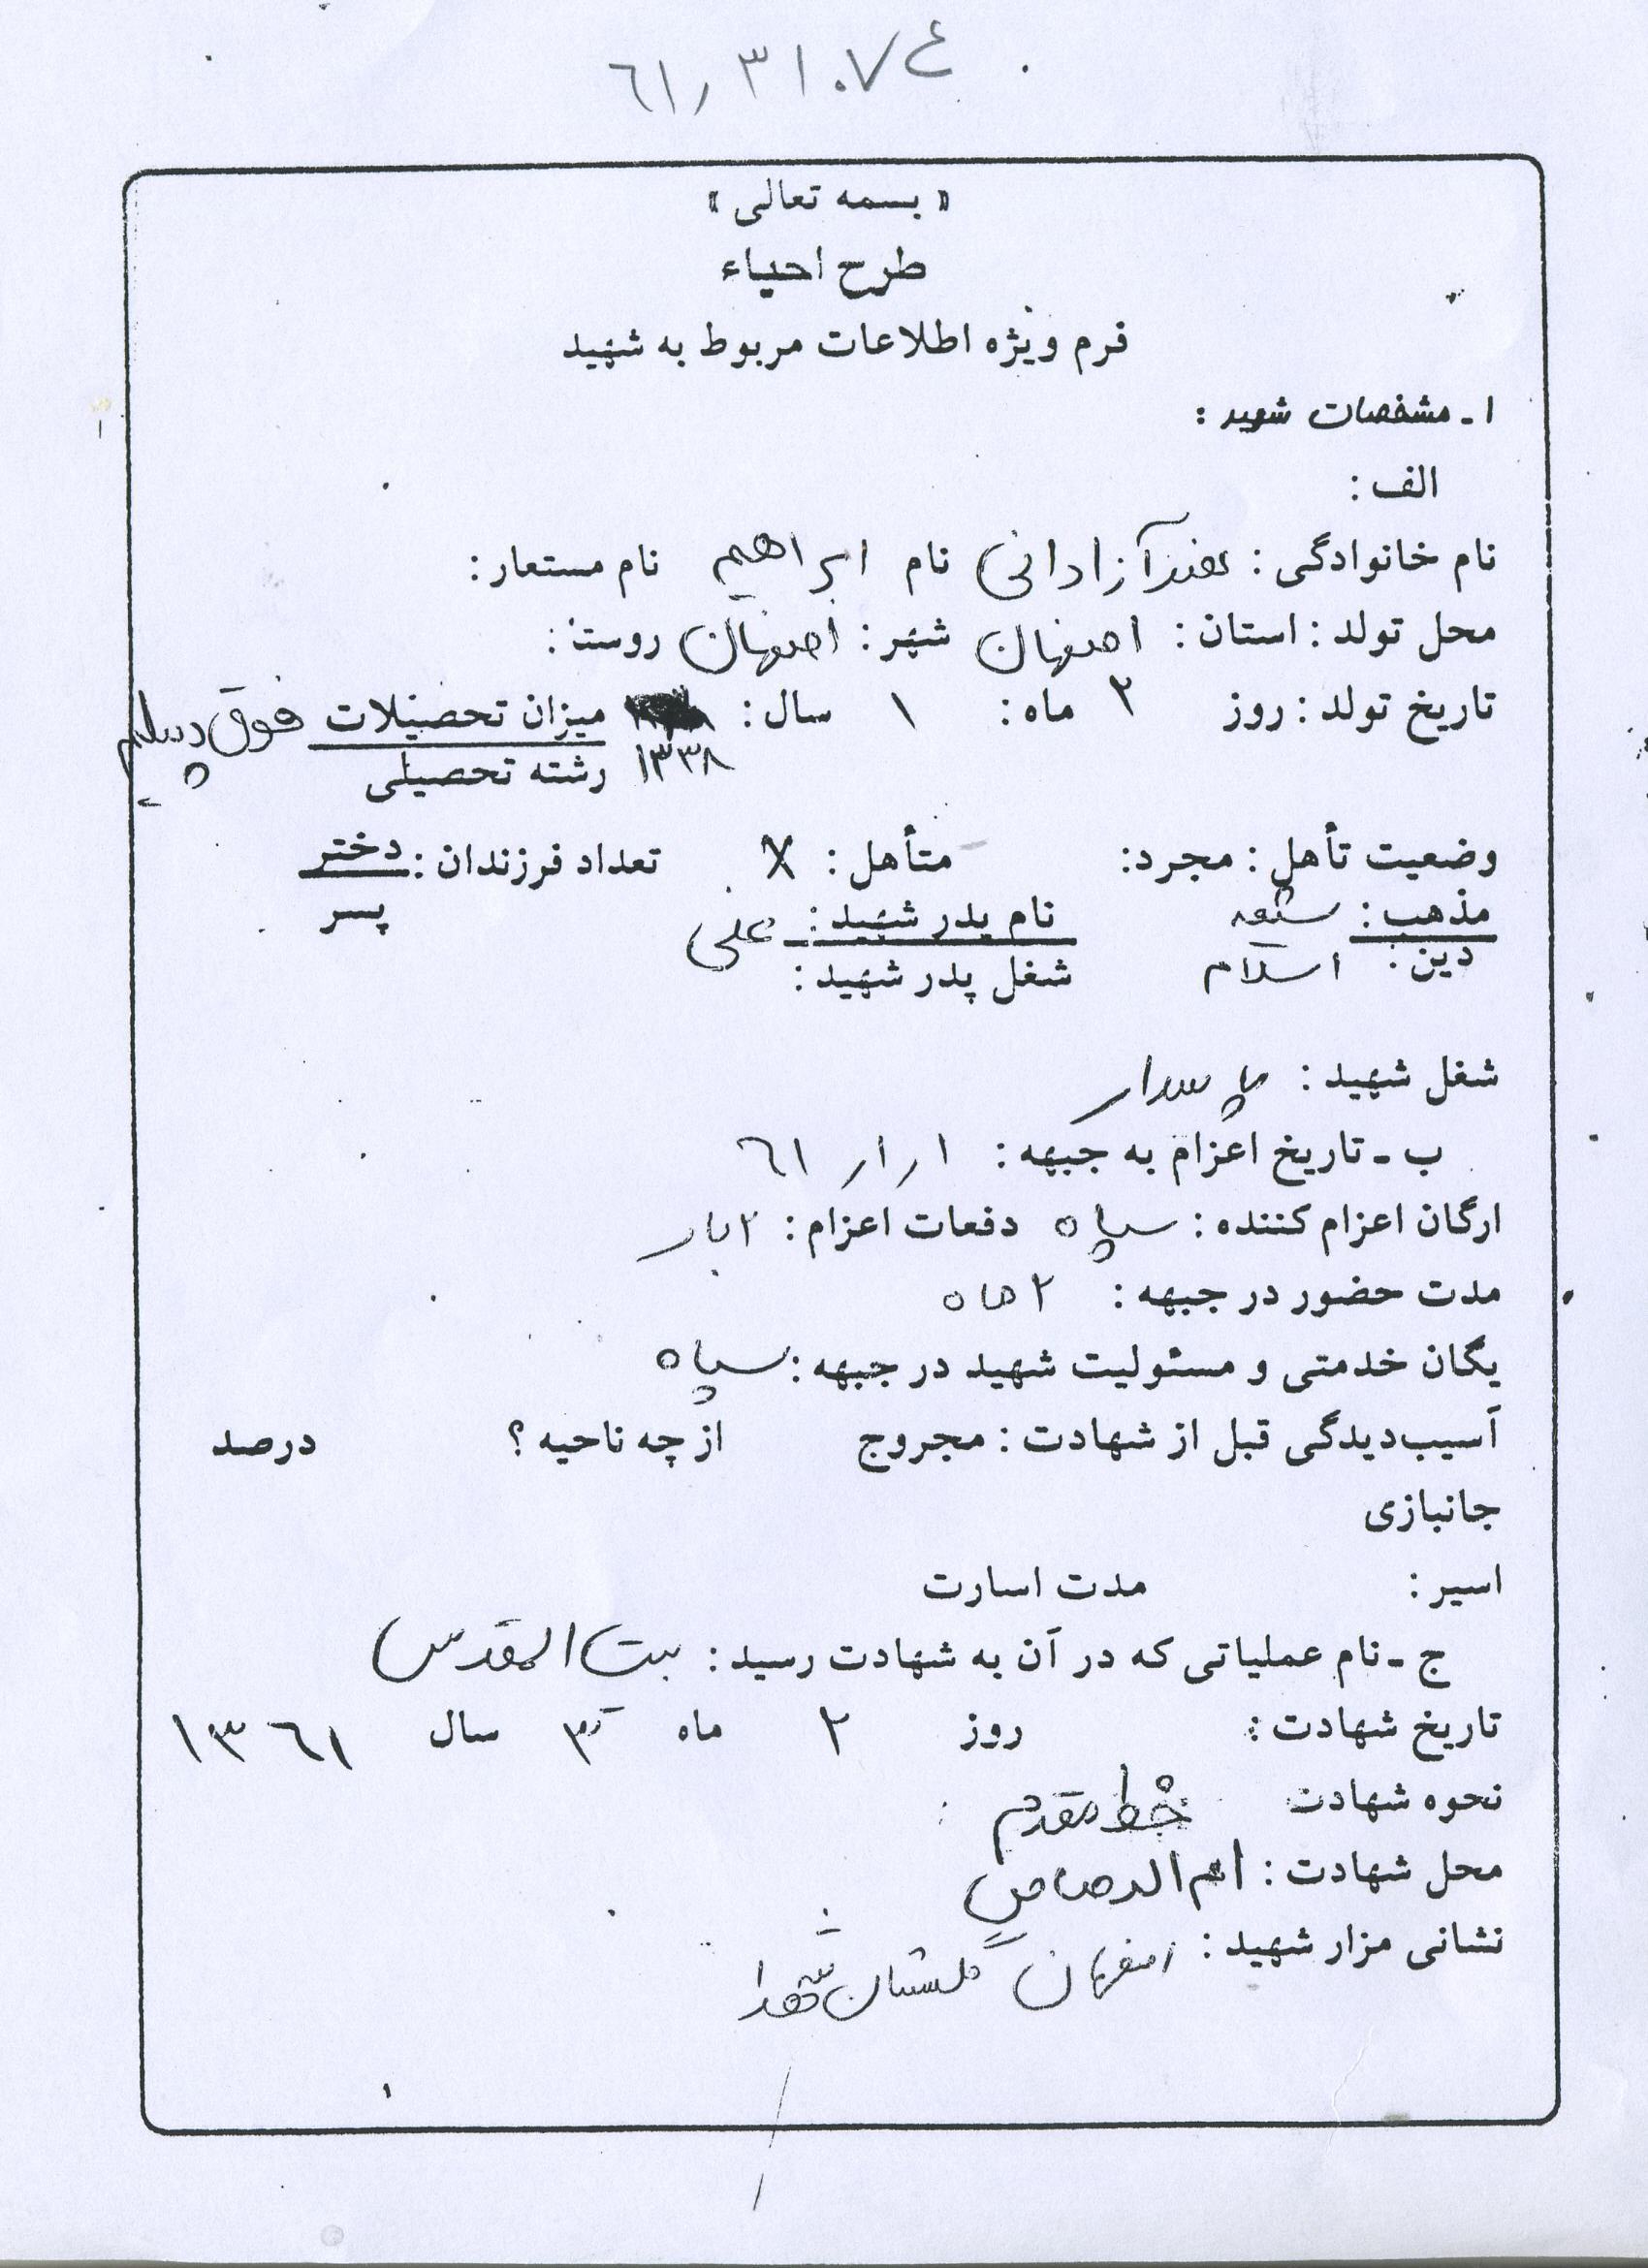 ٦١٫٣١٠٧٤
« بسمه تعالی »
طرح احیاء
فرم ویژه اطلاعات مربوط به شهید
١ـ مشخصات شهید :
الف :
نام خانوادگی : آزادانی نام ابراهیم نام مستعار :
محل تولد : استان : اصفهان شهر : اصفهان روستا :
تاریخ تولد : روز ٢ ماه : ١ سال : ١٣٣٨ میزان تحصیلات فوق دیپلم
رشته تحصیلی
وضعیت تأهل : مجرد: متأهل : X تعداد فرزندان : دختر
پسر
مذهب : شیعه نام پدر شهید : علی
دین : اسلام شغل پدر شهید :
شغل شهید : پاسدار
ب ـ تاریخ اعزام به جبهه : ١ر١ر٦١
ارگان اعزام کننده : سپاه دفعات اعزام : ٢بار
مدت حضور در جبهه : ٢ماه
یگان خدمتی و مسئولیت شهید در جبهه : سپاه
آسیب‌دیدگی قبل از شهادت : مجروح از چه ناحیه ؟ درصد
جانبازی
اسیر : مدت اسارت
ج ـ نام عملیاتی که در آن به شهادت رسید : بیت المقدس
تاریخ شهادت : روز ٢ ماه ٣ سال ١٣٦١
نحوه شهادت خط مقدم
محل شهادت : ام الرصاص
نشانی مزار شهید : اصفهان گلستان شهدا